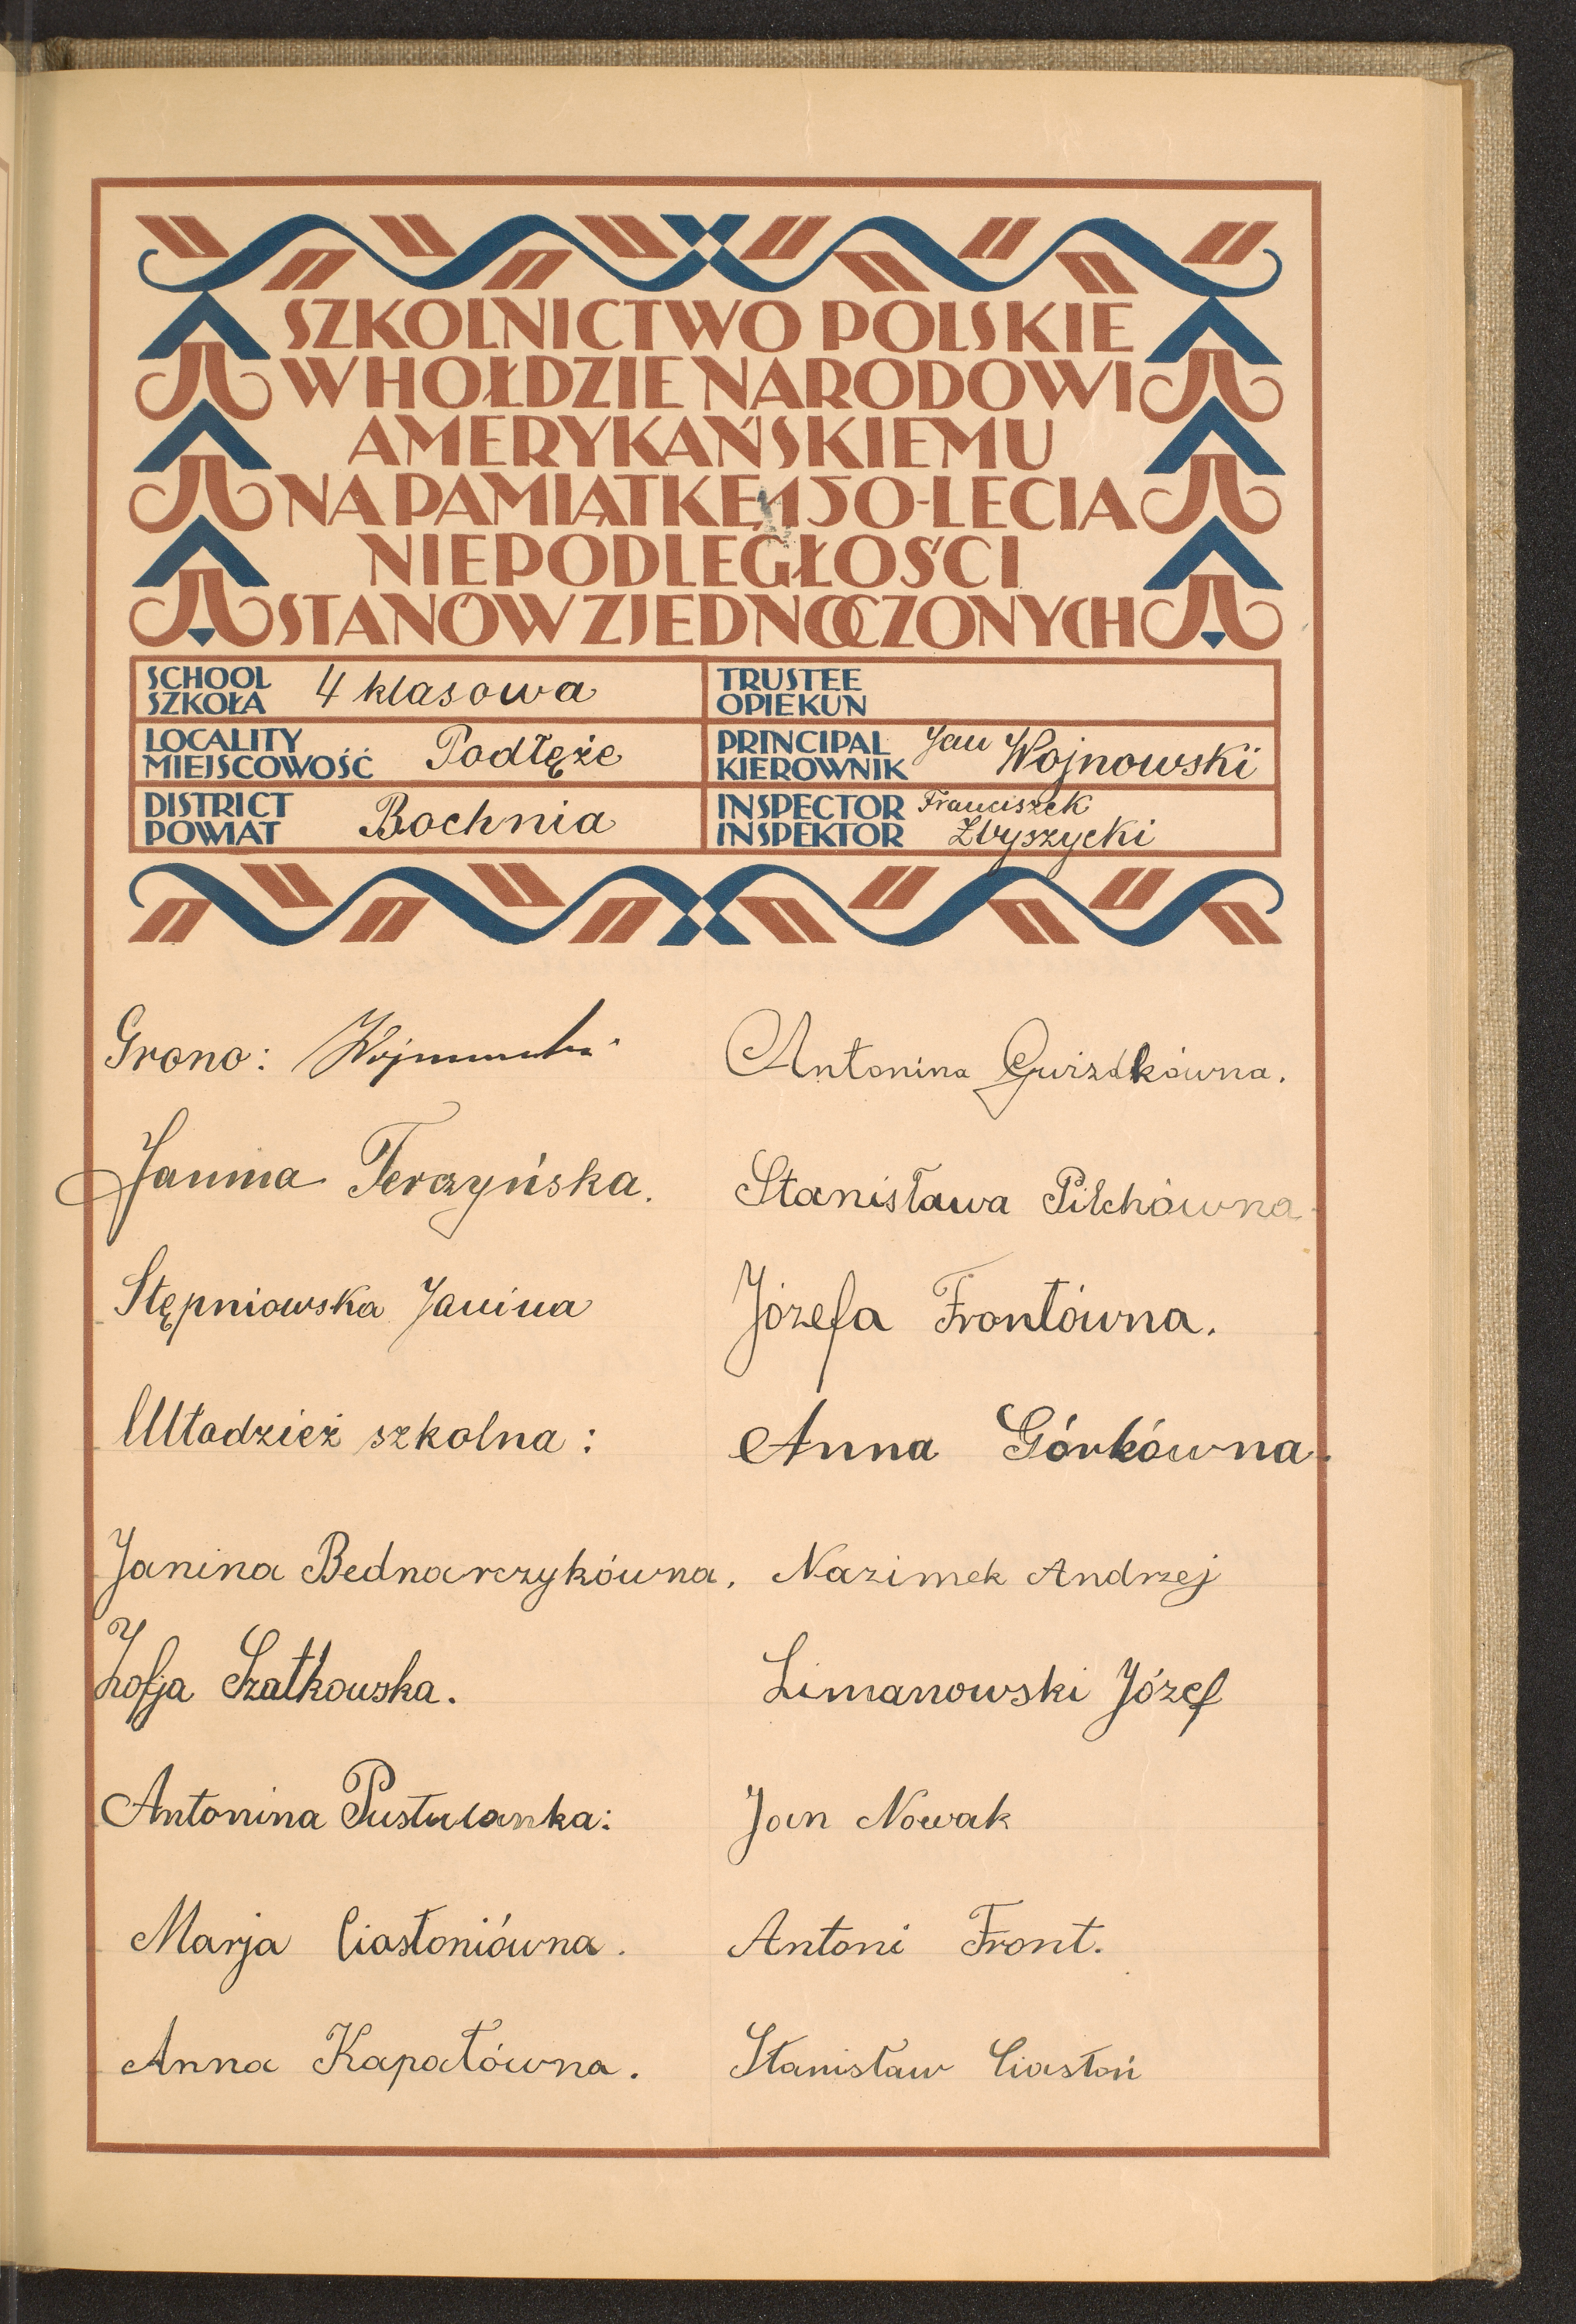 SZKOLNICTWO POLSKIE
W HOŁDZIE NARODOWI
AMERYKAŃSKIEMU
NA PAMIĄTKĘ 150-LECIA
NIEPODLEGŁOŚCI
STANÓW ZJEDNOCZONYCH
SCHOOL
SZKOŁA 4 klasowa
TRUSTEE
OPIEKUN
LOCALITY
MIEJSCOWOŚĆ Podłęże
PRINCIPAL
KIEROWNIK Jan Wojnowski
DISTRICT
POWIAT Bochnia
INSPECTOR Franciszek
INSPEKTOR Zbyszycki
Grono: Wojnowski
Janina Terczyńska.
Stępniowska Janina
Młodzież szkolna:
Janina Bednarczykówna.
Zofja Szatkowska.
Antonina Pustulanka:
Marja Ciastoniówna.
Anna Kapałówna.
Antonina Gwizdkówna.
Stanisława Pilchówna
Józefa Frontówna.
Anna Górkówna.
Nazimek Andrzej
Limanowski Józef
Jan Nowak
Antoni Front.
Stanisław Ciastoń